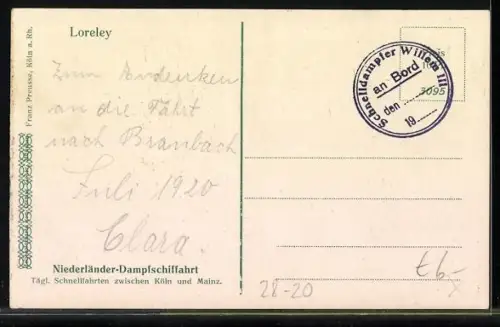 Loreley
Franz Preusse, Köln a. Rh.
Zum Andenken
an die Fahrt
nach Braubach
Juli 1920
Clara.
Niederländer-Dampfschiffahrt
Tägl. Schnellfahrten zwischen Köln und Mainz.
Schnelldampfer Willem III
an Bord
den
19
3095
28-20